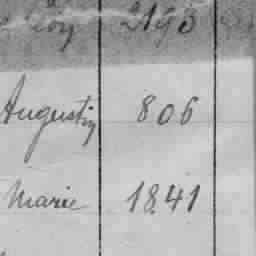 2193
Augustin 806
Marie 1841